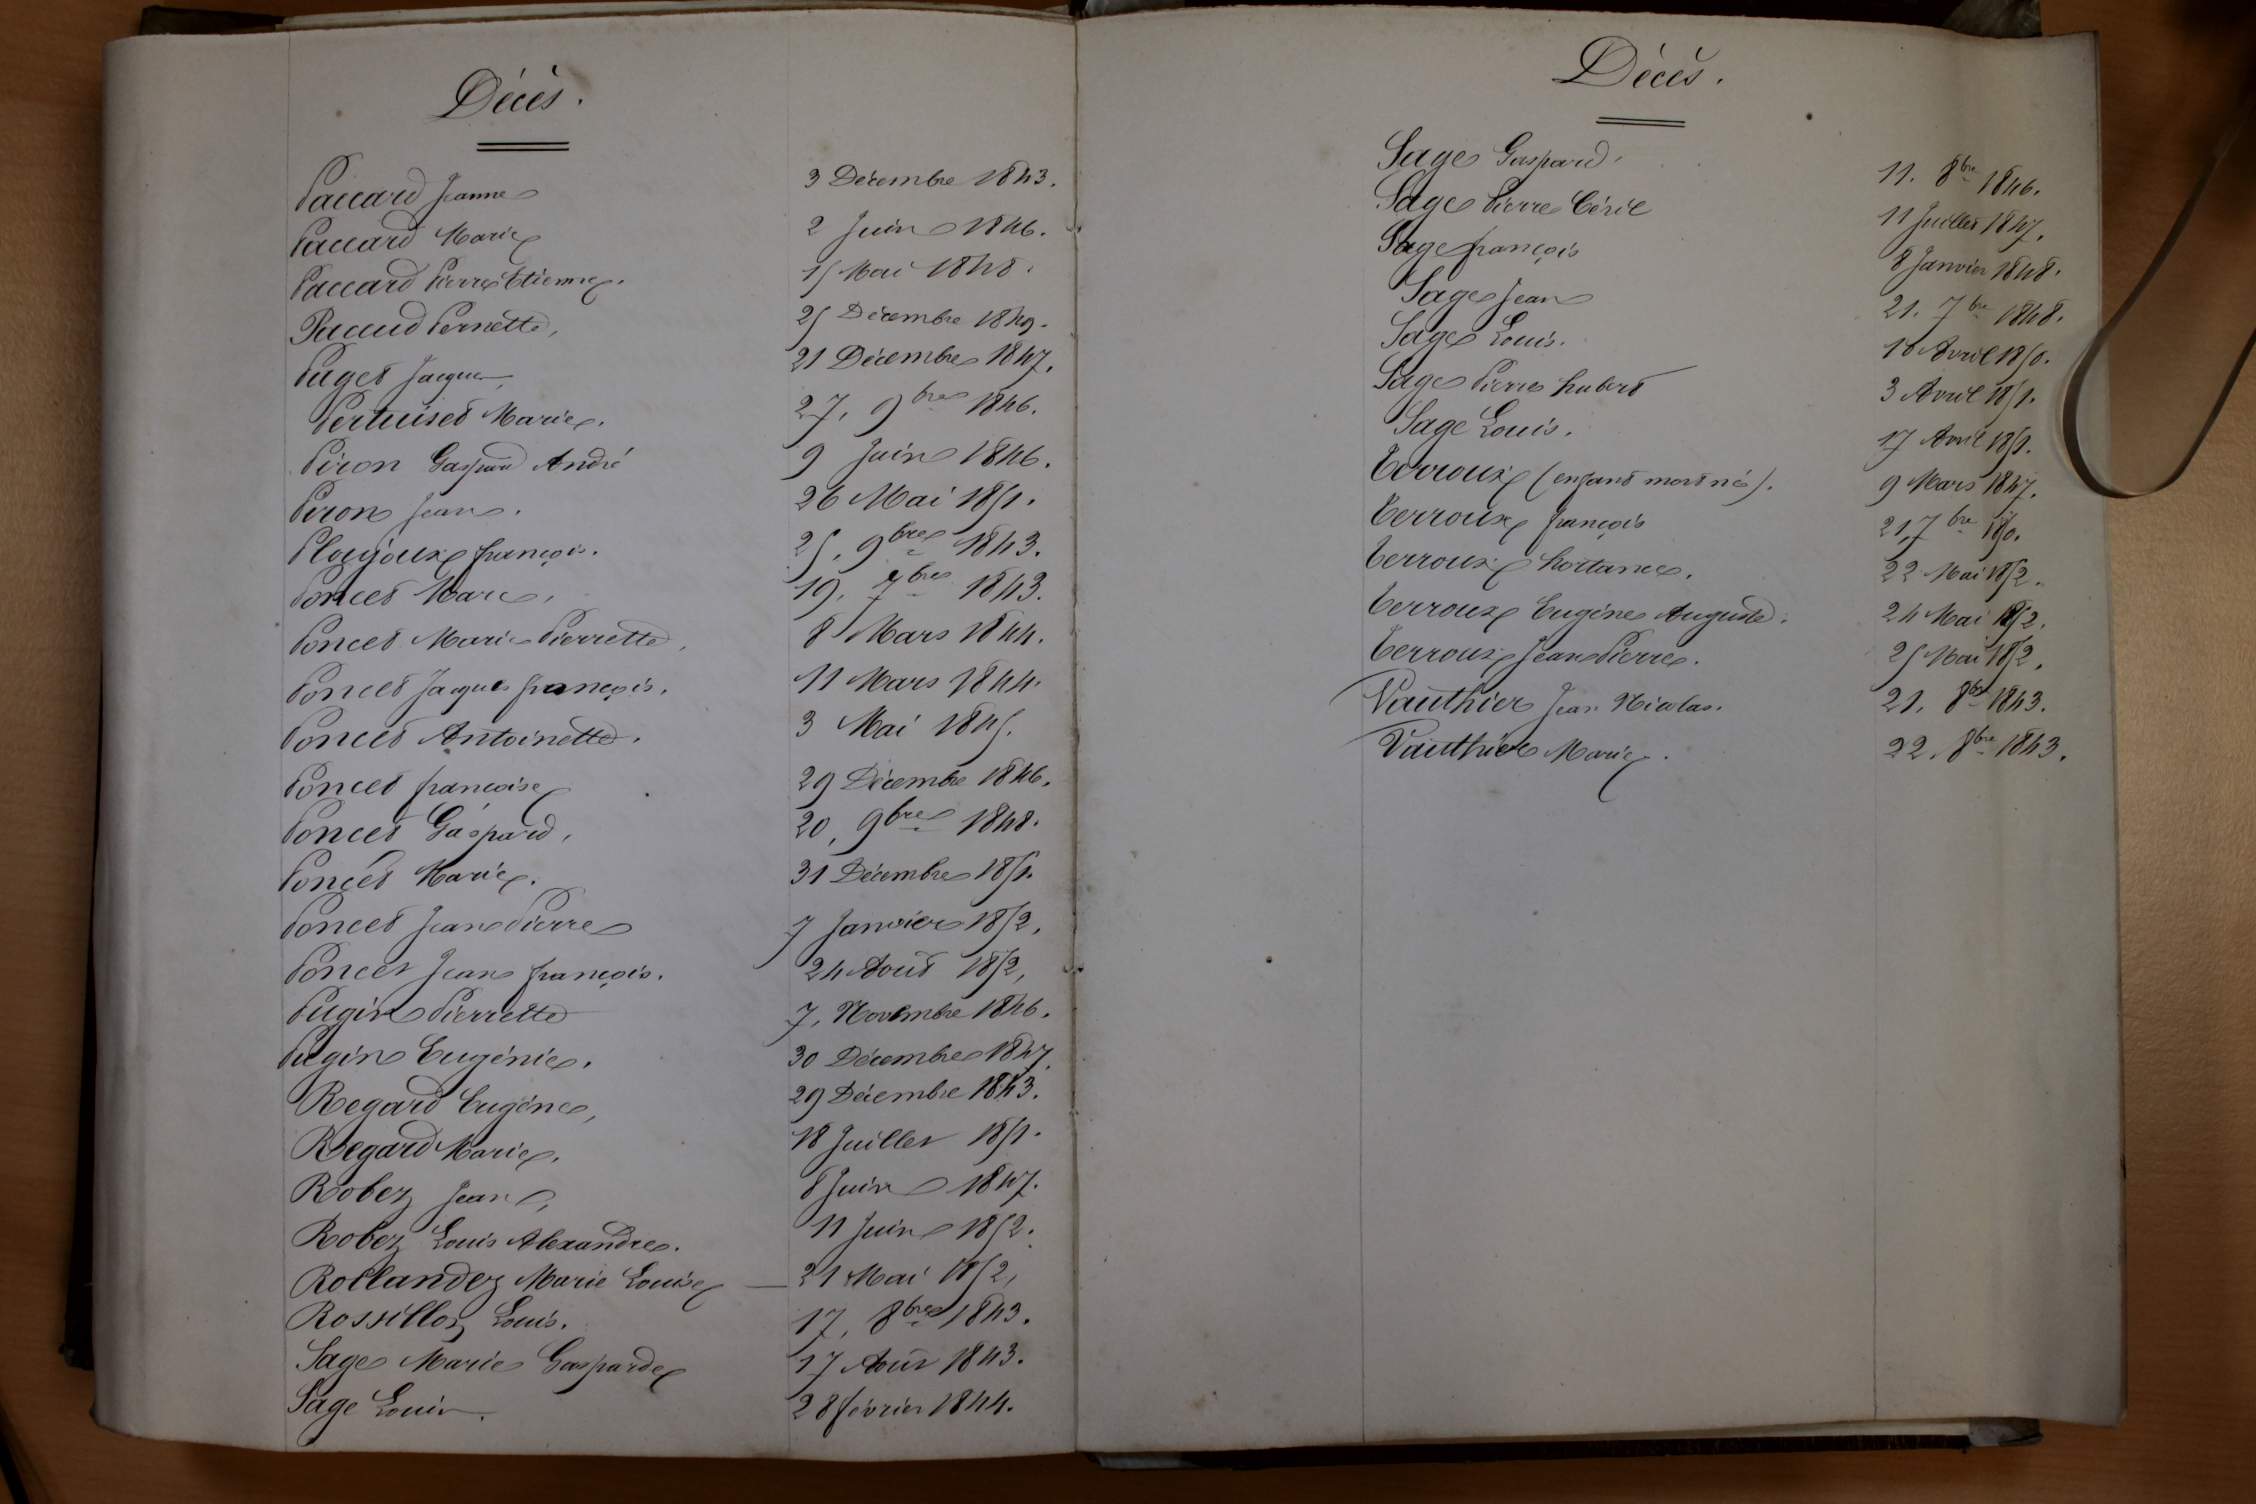 Décès.
Paccard Jeanne 3 Décembre 1843.
Paccard Marie 2 Juin 1846.
Paccard Pierre Etienne. 15 Mai 1848.
Pacaud Pernette, 25 Décembre 1849.
Puget Jacques, 21 Décembre 1847.
Pertuiset Marie. 27, 9bre 1846.
Piron Gaspard André 9 Juin 1846.
Piron Jean. 26 Mai 1851.
Ploujoux françois. 25, 9bre 1843.
Poncet Marc, 19, 7bre 1843.
Poncet Marie Pierrette, 8 Mars 1844.
Poncet Jaques françois. 11 Mars 1844.
Poncet Antoinette. 3 Mai 1845.
Poncet françoise 29 Décembre 1846.
Poncet Gaspard, 20, 9bre 1848.
Poncet Marie. 31 Décembre 1851.
Poncet Jean Pierre 7 Janvier 1852,
Poncet Jean françois. 24 Août 1852,
Pugin Pierrette 7, Novembre 1846.
Pugin Eugénie. 30 Décembre 1847.
Regard Eugène, 29 Décembre 1843.
Regard Marie. 18 Juillet 1851.
Robez Jean, 8 Juin 1847.
Robez Louis Alexandre. 11 Juin 1852.
Rollandez Marie Louise — 21 Mai 1852,
Rossillon Louis. 17, 8bre 1843.
Sage Marie Gasparde 17 Août 1843.
Sage Louis. 28 février 1844.
Décès.
Sage Gaspard. 11. 8bre 1846.
Sage Pierre Césil 11 Juillet 1847.
Sage françois 8 Janvier 1848.
Sage Jean 21. 7bre 1848.
Sage Louis. 10 Avril 1850.
Sage Pierre hubert 3 Avril 1851.
Sage Louis. 17 Avril 1851.
Terroux (enfant mort né). 9 Mars 1847.
Terroux françois 21, 7bre 1850.
Terroux hortance. 22 Mai 1852.
Terroux Eugène Auguste. 24 Mai 1852.
Terroux Jean Pierre. 25 Mai 1852.
Vauthier Jean Nicolas. 21. 8bre 1843.
Vauthier Marie. 22. 8bre 1843.